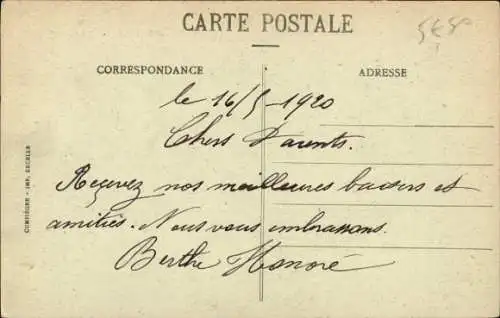 CARTE POSTALE
CORRESPONDANCE
ADRESSE
le 16/5-1920
Chers Parents.
Reçevez nos meilleures baisers et
amitiés. Nous vous embrassons.
Berthe Honoré
COMPIÈGNE - IMP. DECELLE